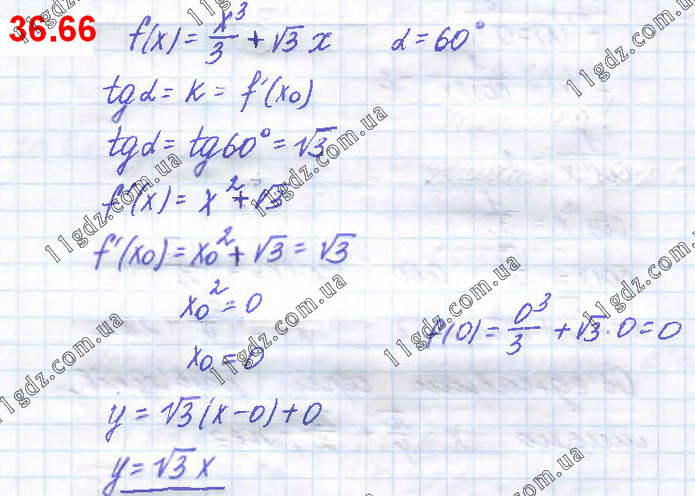 36.66
f(x) = x³/3 + √3 x    α = 60°
tgα = k = f'(x₀)
tgα = tg60° = √3
f'(x) = x² + √3
f'(x₀) = x₀² + √3 = √3
x₀² = 0
x₀ = 0    f(0) = 0³/3 + √3 · 0 = 0
y = √3(x − 0) + 0
y = √3 x
11gdz.com.ua
11gdz.com.ua
11gdz.com.ua
11gdz.com.ua
11gdz.com.ua
11gdz.com.ua
11gdz.com.ua
11gdz.com.ua
11gdz.com.ua